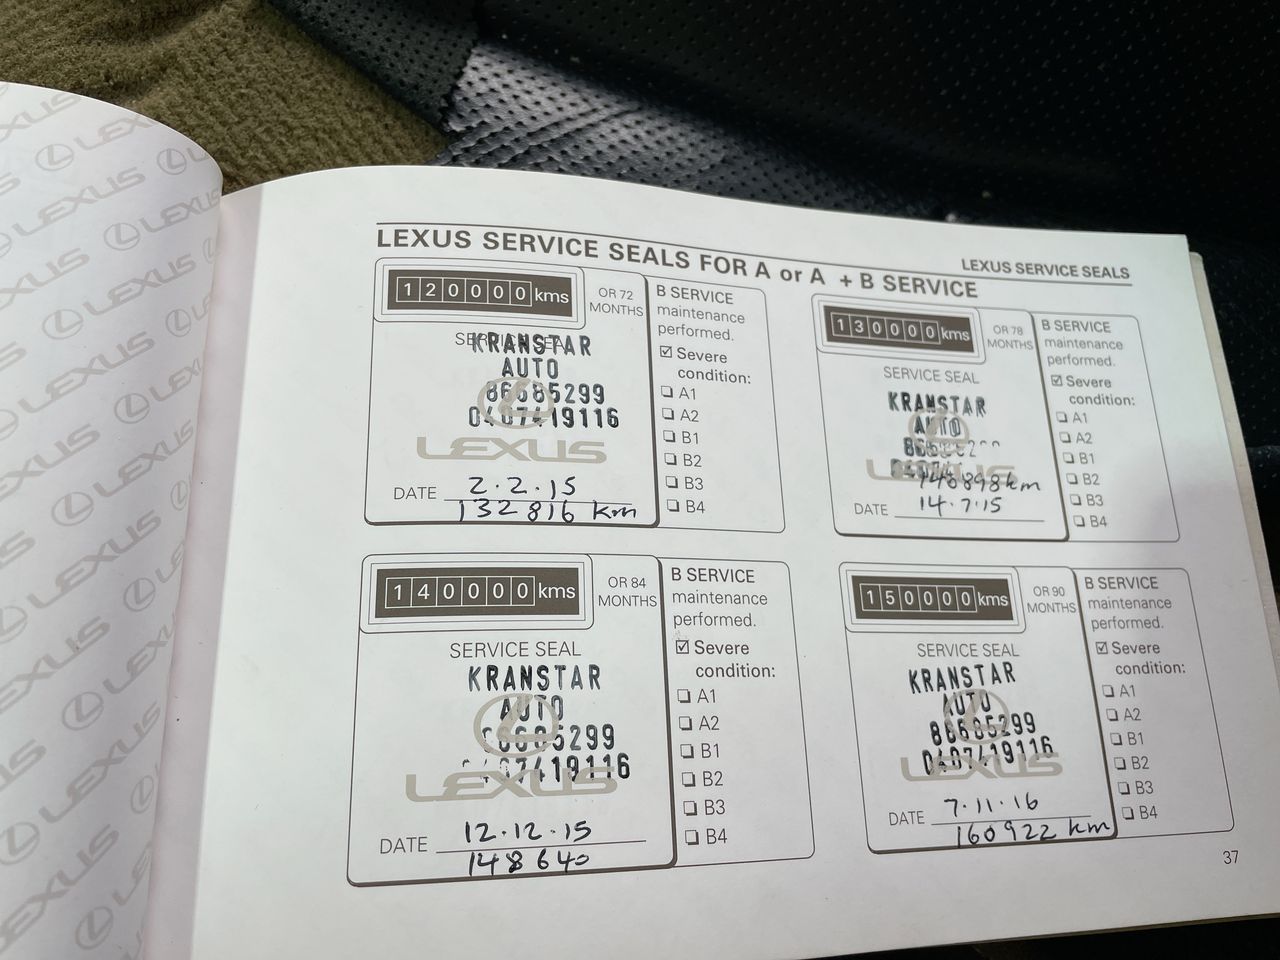 LEXUS SERVICE SEALS FOR A or A + B SERVICE
LEXUS SERVICE SEALS
120000 kms
OR 72
MONTHS
SERVICE SEAL
KRANSTAR
AUTO
86685299
0407419116
LEXUS
DATE 2.2.15
132816 km
B SERVICE
maintenance
performed.
☑ Severe
condition:
❑ A1
❑ A2
❑ B1
❑ B2
❑ B3
❑ B4
130000 kms
OR 78
MONTHS
SERVICE SEAL
KRANSTAR
AUTO
LEXUS
140898 km
DATE 14.7.15
B SERVICE
maintenance
performed.
☑ Severe
condition:
❑ A1
❑ A2
❑ B1
❑ B2
❑ B3
❑ B4
140000 kms
OR 84
MONTHS
SERVICE SEAL
KRANSTAR
AUTO
86685299
0407419116
LEXUS
DATE 12.12.15
148640
B SERVICE
maintenance
performed.
☑ Severe
condition:
❑ A1
❑ A2
❑ B1
❑ B2
❑ B3
❑ B4
150000 kms
OR 90
MONTHS
SERVICE SEAL
KRANSTAR
AUTO
86685299
0407419116
LEXUS
DATE 7.11.16
160922 km
B SERVICE
maintenance
performed.
☑ Severe
condition:
❑ A1
❑ A2
❑ B1
❑ B2
❑ B3
❑ B4
37
LEXUS
LEXUS
LEXUS
LEXUS
LEXUS
LEXUS